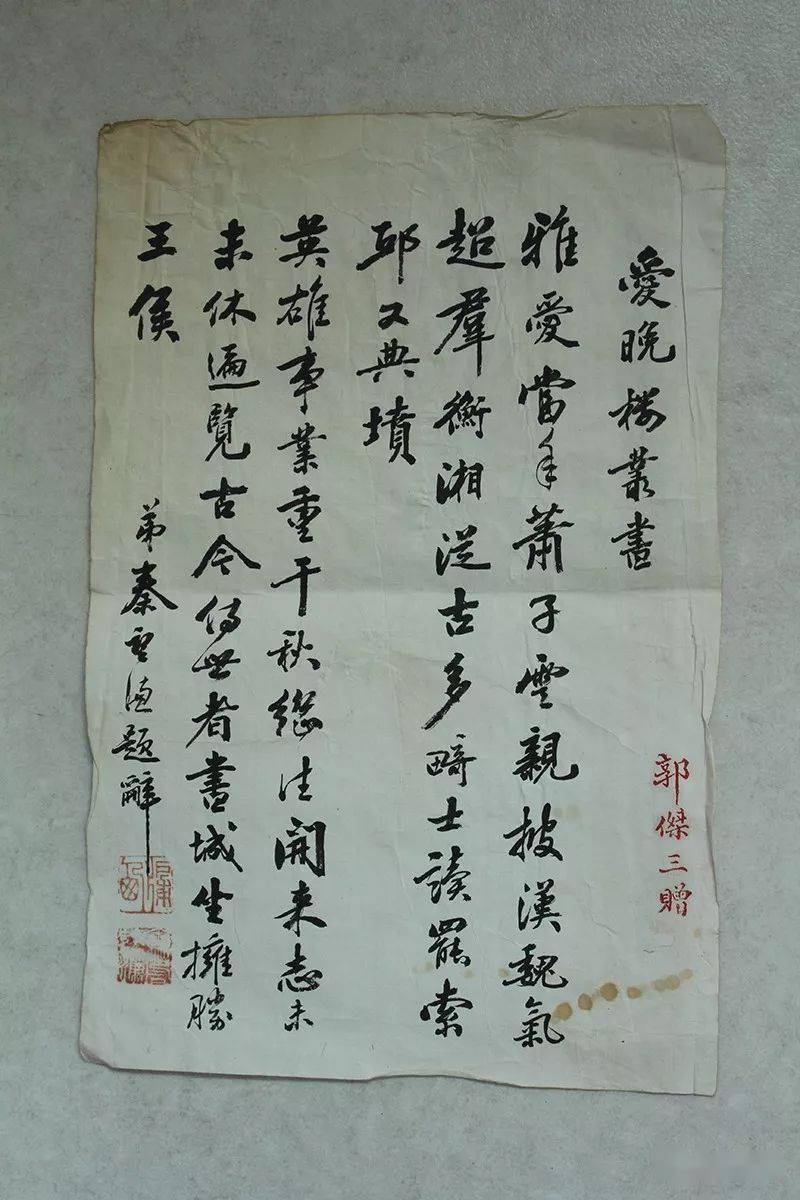 愛晚樓叢書
郭傑三贈
雅愛當年蕭子雲親披漢魏氣
超羣衡湘從古多畸士讀罷索
邱又典墳
英雄事業重千秋繼往開来志未
未休遍覽古今傳世者書城坐擁勝
王侯
弟秦題辭